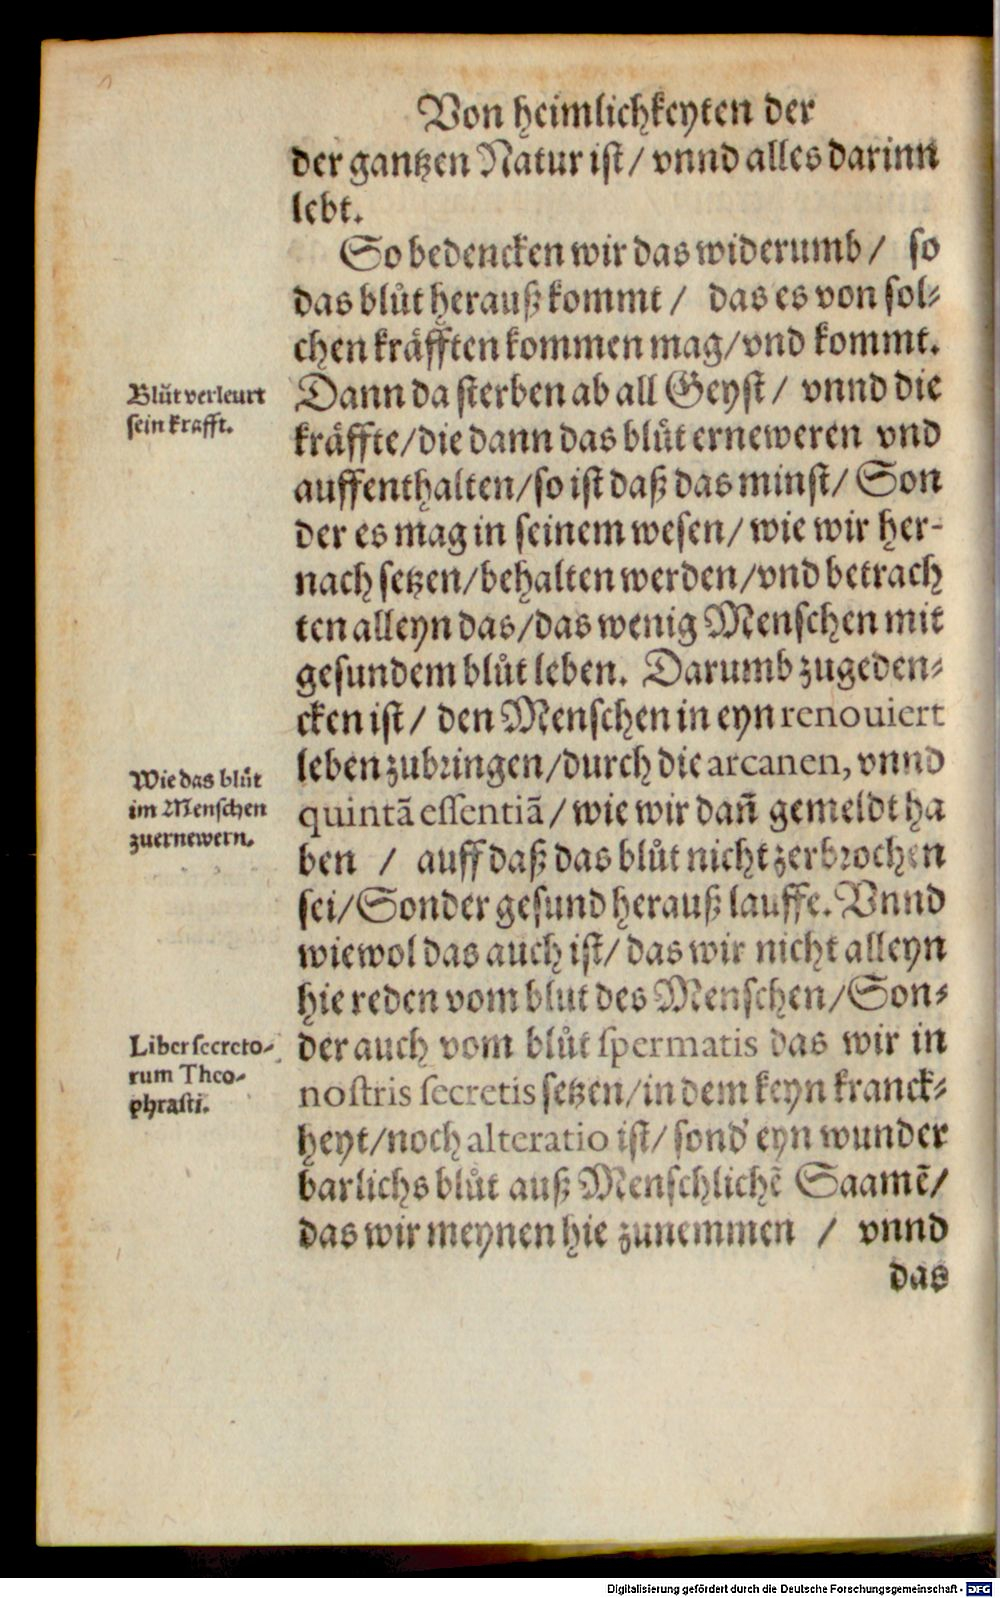 Von heimlichkeyten der
der gantzen Natur ist/ vnnd alles darinn
lebt.
So bedencken wir das widerumb/ so
das blůt herauß kommt/ das es von sol⸗
chen kräfften kommen mag/vnd kommt.
Blůt verleurt
sein krafft.
Dann da sterben ab all Geyst/ vnnd die
kräffte/die dann das blůt erneweren vnd
auffenthalten/so ist daß das minst/ Son
der es mag in seinem wesen/ wie wir her-
nach setzen/behalten werden/vnd betrach
ten alleyn das/das wenig Menschen mit
gesundem blůt leben. Darumb zugeden⸗
cken ist/ den Menschen in eyn renouiert
Wie das blůt
im Menschen
zuernewern.
leben zubringen/durch die arcanen, vnnd
quintā essentiā/ wie wir dañ gemeldt ha
ben / auff daß das blůt nicht zerbrochen
sei/Sonder gesund herauß lauffe. Vnnd
wiewol das auch ist/ das wir nicht alleyn
hie reden vom blut des Menschen/Son⸗
Liber secreto⸗
rum Theo⸗
phrasti.
der auch vom blůt spermatis das wir in
nostris secretis setzen/in dem keyn kranck⸗
heyt/noch alteratio ist/ sond' eyn wunder
barlichs blůt auß Menschlichē Saamē/
das wir meynen hie zunemmen / vnnd
das
Digitalisierung gefördert durch die Deutsche Forschungsgemeinschaft - DFG